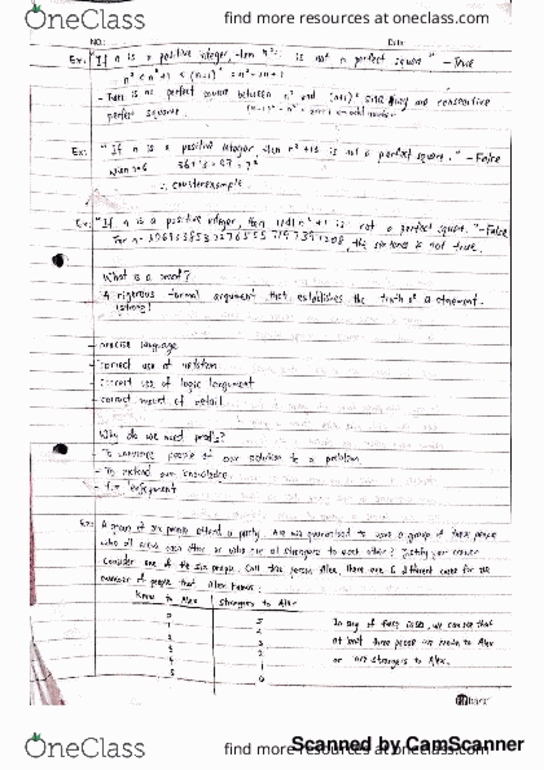 OneClass
find more resources at oneclass.com
NO.: Date
Ex: "If n is a positive integer, then n²+1 is not a perfect square" - True
n² < n²+1 < (n+1)² = n²+2n+1
- There is no perfect square between n² and (n+1)² since they are consecutive
perfect squares.
Ex: "If n is a positive integer then n²+13 is not a perfect square." - False
when n=6 36+13 = 49 = 7²
∴ counterexample
Ex: "If n is a positive integer, then 1141n²+1 is not a perfect square." - False
For n= the sentence is not true.
What is a proof?
A rigorous formal argument that establishes the truth of a statement.
(strong)
- precise language
- correct use of notation
- correct use of logic (argument
- correct amount of detail
Why do we need proofs?
- To convince people of our solution to a problem
- To extend our knowledge.
- For enjoyment
Ex: A group of six people attend a party. Are we guaranteed to have a group of three people
who all know each other or who are all strangers to each other? Justify your answer
Consider one of the six people. Call this person Alex. There are 6 different cases for the
number of people that Alex knows:
Know to Alex Strangers to Alex
0 5
1 4 In any of these cases, we can see that
2 3 at least three people are known to Alex
3 2 or are strangers to Alex.
4 1
5 0
OneClass
find more resources at oneclass.com
Scanned by CamScanner